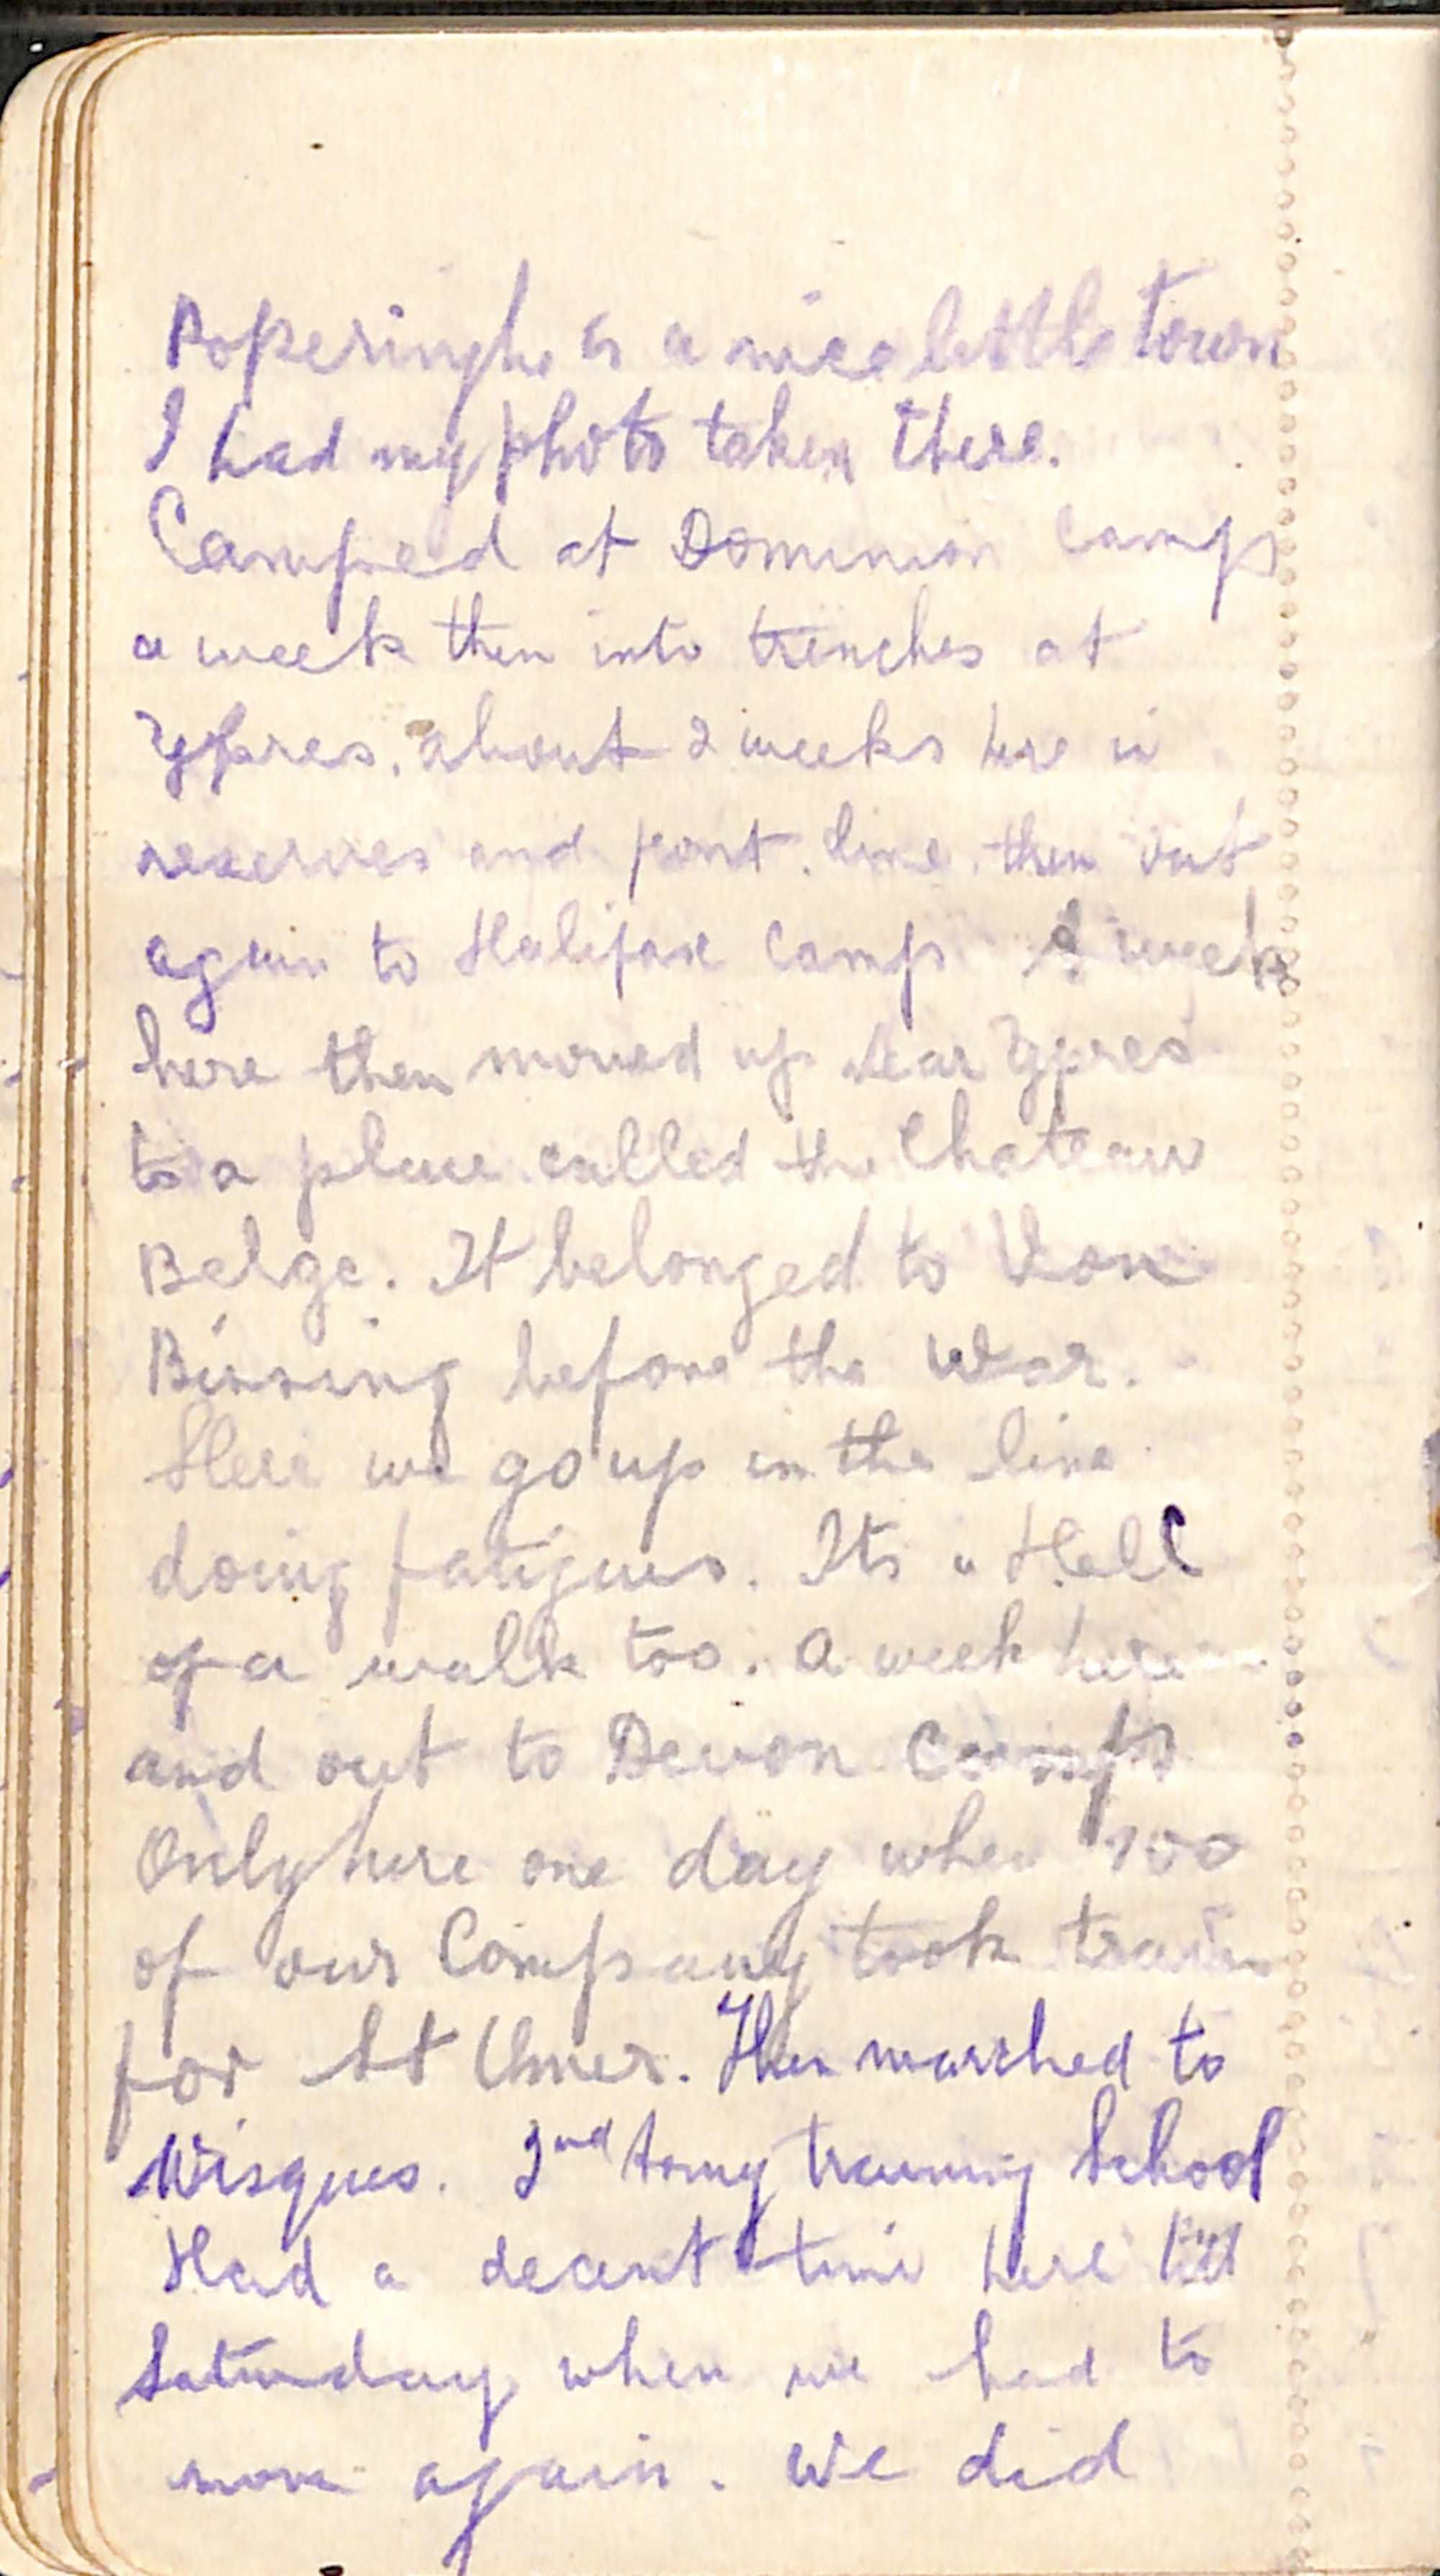 Poperinghe is a nice little town
I had my photo taken there.
Camped at Dominion Camp
a week then into trenches at
Ypres. about 2 weeks here in
reserves and front line then out
again to Halifax Camp week
here then moved up near Ypres
to a place called the Chateau
Belge. It belonged to Von
Bissing before the War.
Here we go up in the line
doing fatigues. Its a Hell
of a walk too. A week here
and out to Devon Camp
Only here one day when 100
of our Company took train
for St Omer. Then marched to
Wisques. 2nd Army training School
Had a decent time here till
Saturday when we had to
move again. We did